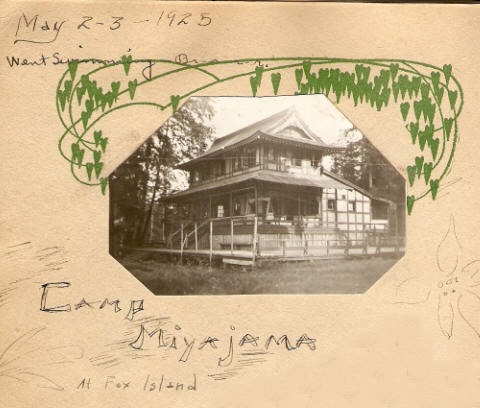 May 2-3-1925
Went Swimming
Camp
Miyajama
At Fox Island